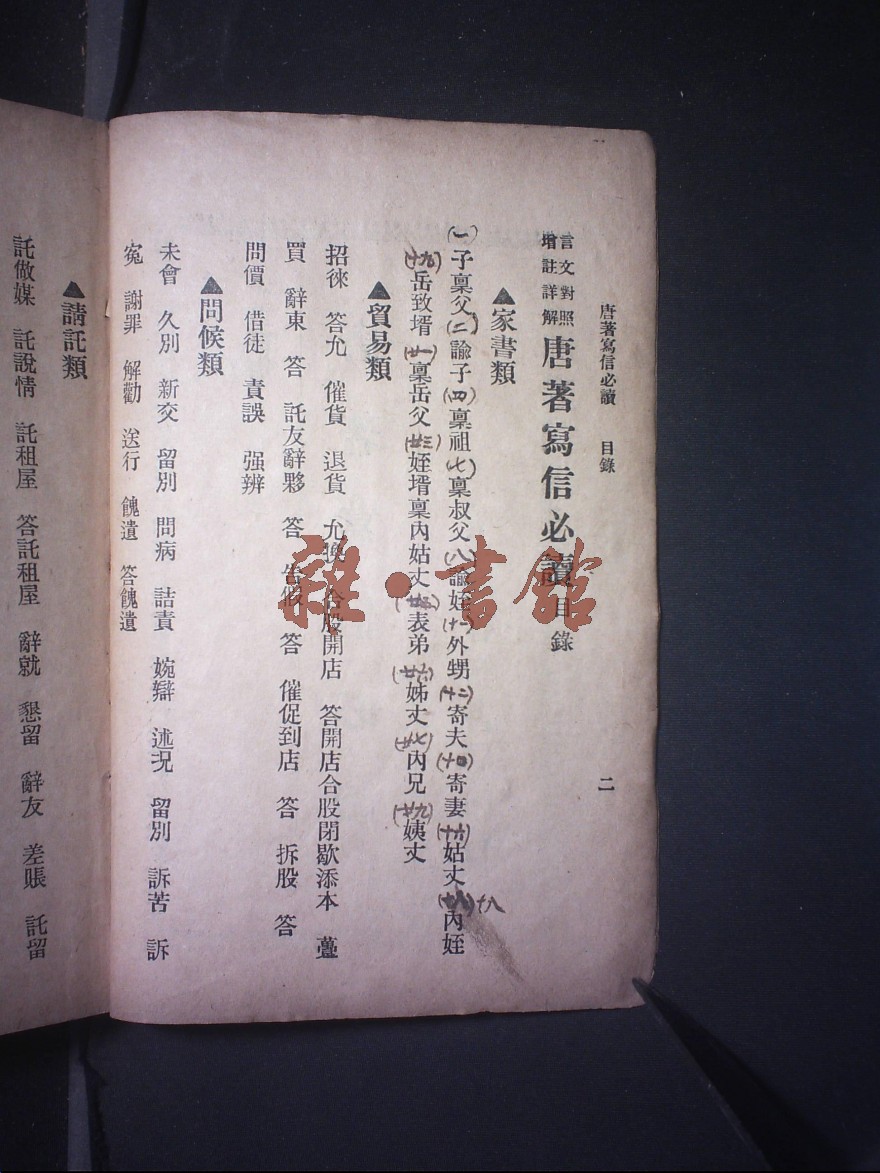 唐著寫信必讀 目錄 二
言文對照
增註詳解
唐著寫信必讀目錄
▲家書類
(一)子稟父(二)諭子(四)稟祖(七)稟叔父(八)諭姪(十一)外甥(十二)寄夫(十四)寄妻(十六)姑丈 十八 內姪
(十九)岳致壻(廿一)稟岳父(廿三)姪壻稟內姑丈 表弟(廿六)姊丈(廿七)內兄(廿九)姨丈
▲貿易類
招徠 答允 催貨 退貨 允換 合股開店 答開店合股閉歇添本 躉
買 辭東 答 託友辭夥 答 告假 答 催促到店 答 拆股 答
問價 借徒 責誤 强辨
▲問候類
未會 久別 新交 留別 問病 詰責 婉辯 述况 留別 訴苦 訴
寃 謝罪 解勸 送行 餽遺 答餽遺
▲請託類
託做媒 託說情 託租屋 答託租屋 辭就 懇留 辭友 差賬 託留
雜·書館